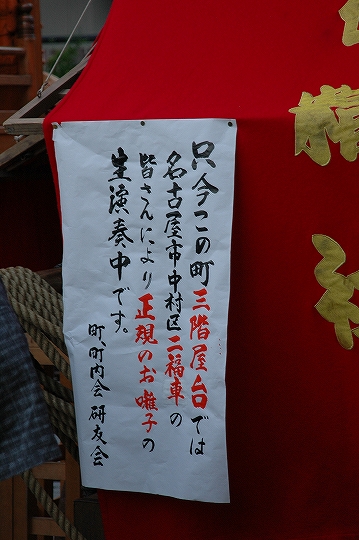 只今この町三階屋台では
名古屋市中村区二福車の
皆さんにより正規のお囃子の
生演奏中です。
町、町内会 研友会